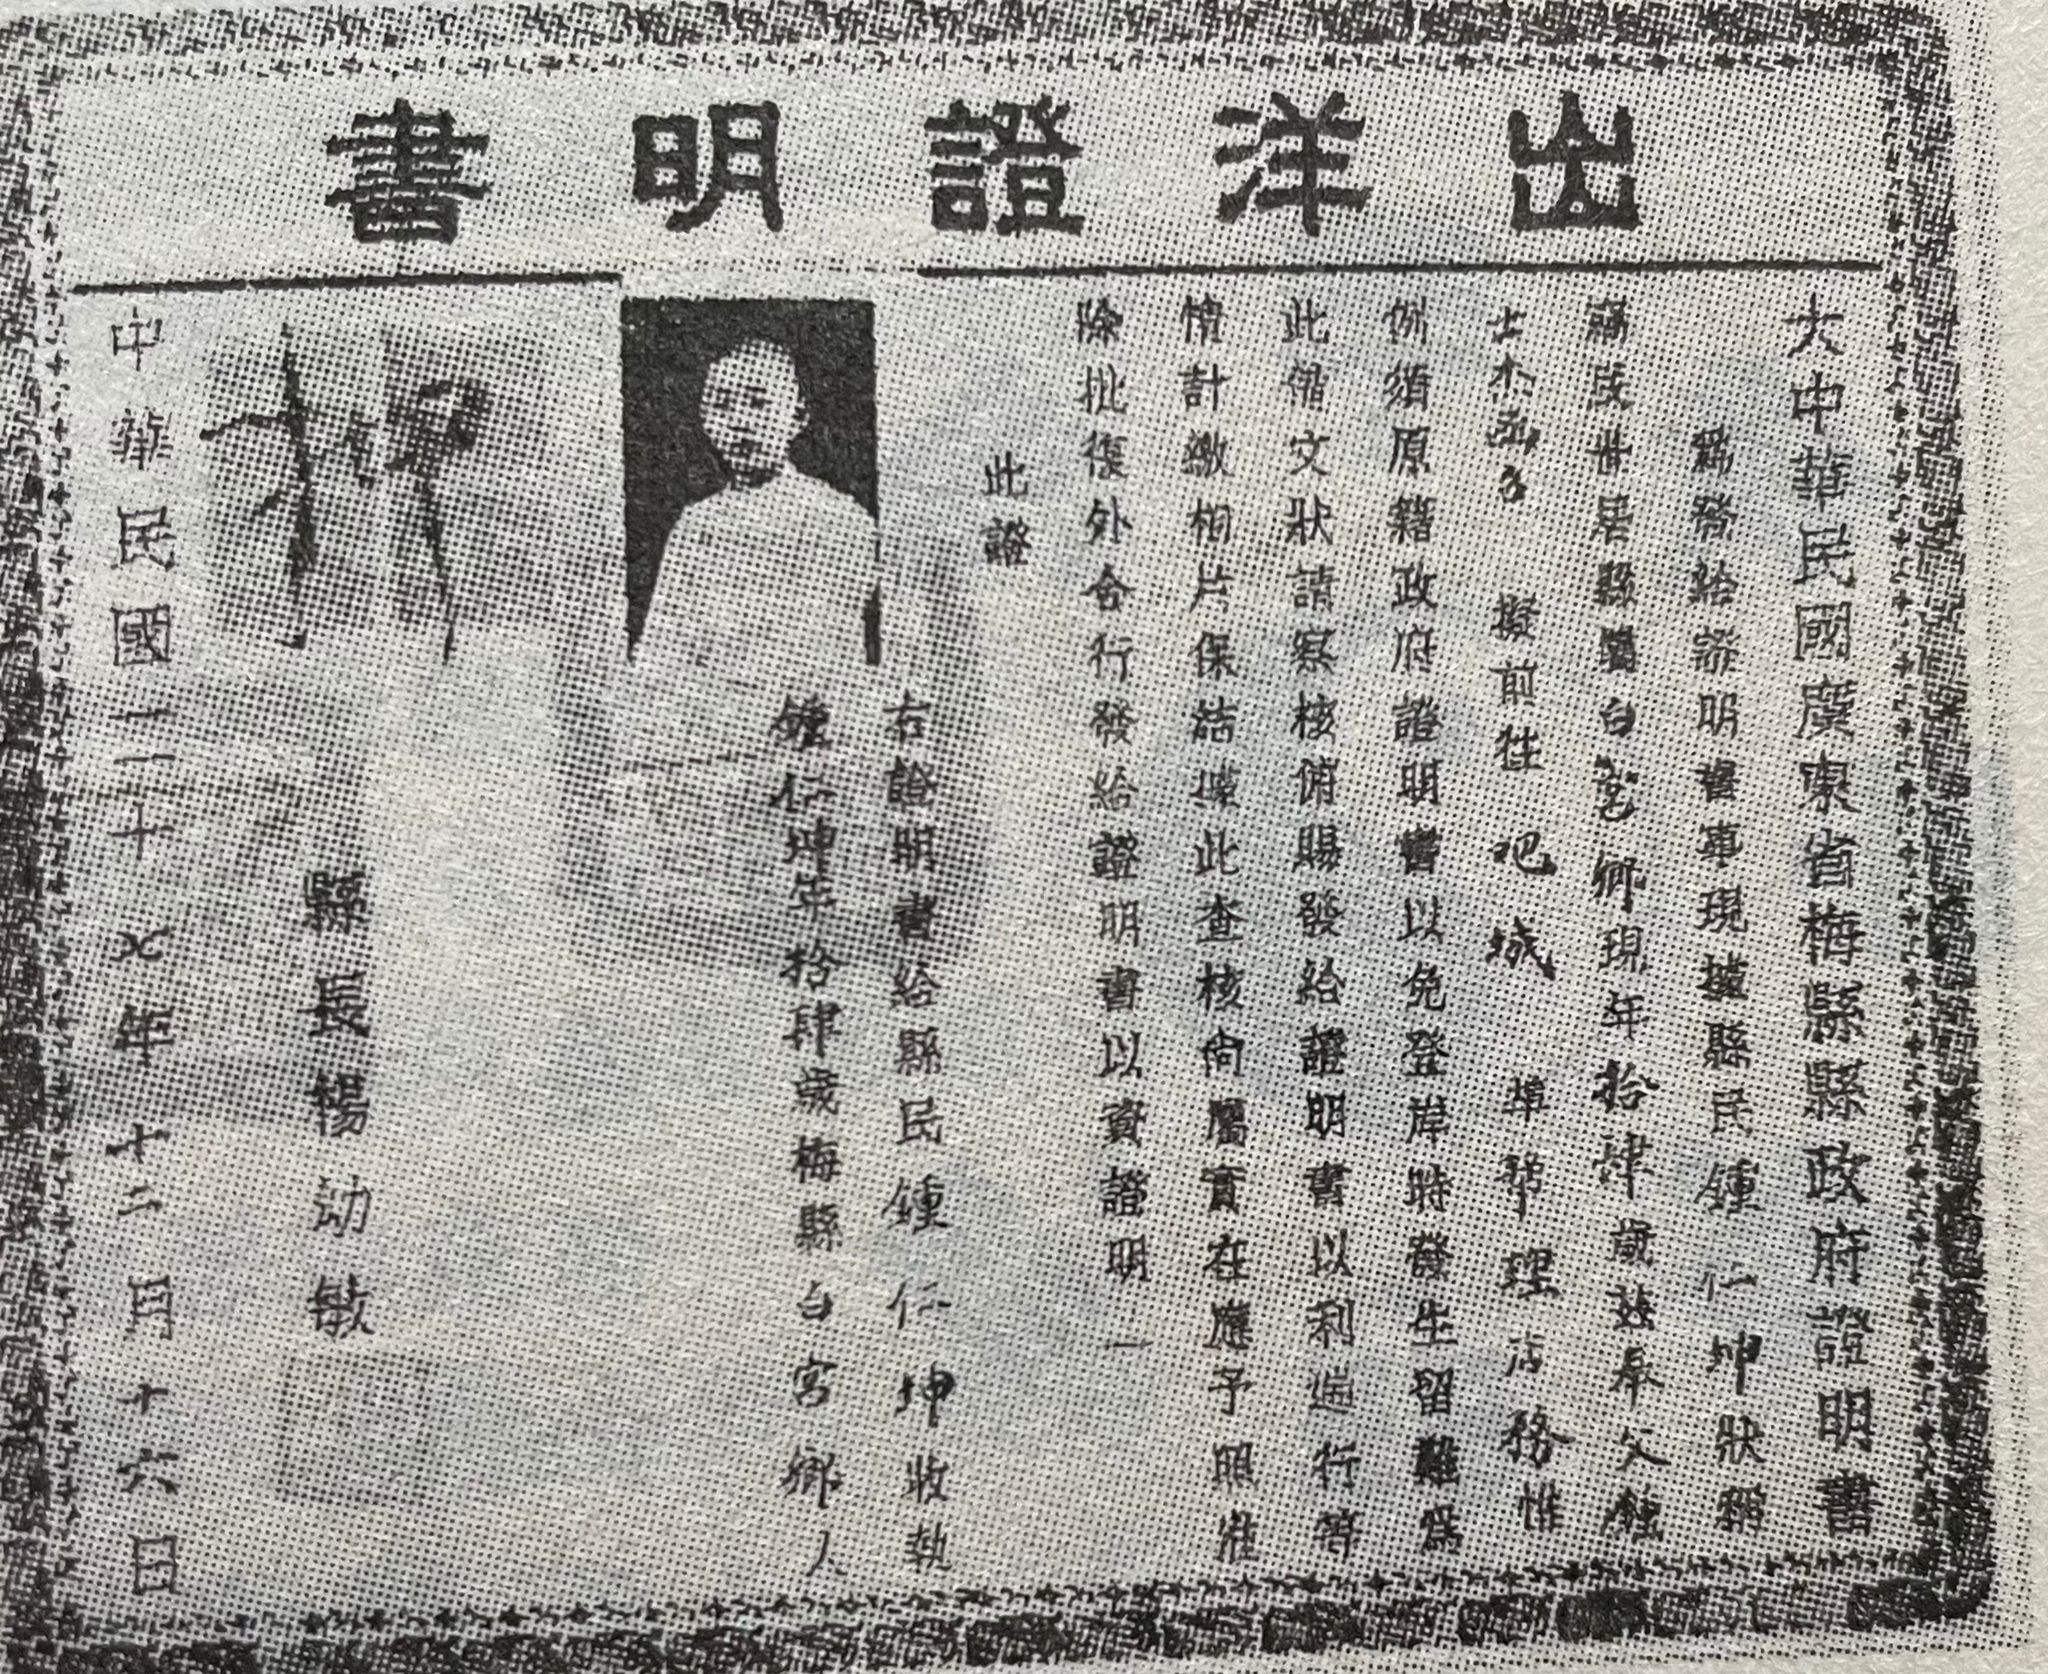 出洋證明書
大中華民國廣東省梅縣縣政府證明書
爲發給證明書事現據縣民鍾仁坤狀稱
竊民世居縣屬白宮鄉現年拾肆歲茲奉父鍾
士杰 擬前往吧城埠幫理店務惟
例須原籍政府證明書以免登岸時發生留難爲
此備文狀請察核俯賜發給證明書以利遄行等
情計繳相片保結據此查核尚屬實在應予照准
除批復外合行發給證明書以資證明
此證
右證明書給縣民鍾仁坤收執
鍾仁坤年拾肆歲梅縣白宮鄉人
縣長楊幼敏
中華民國二十七年十二月十六日